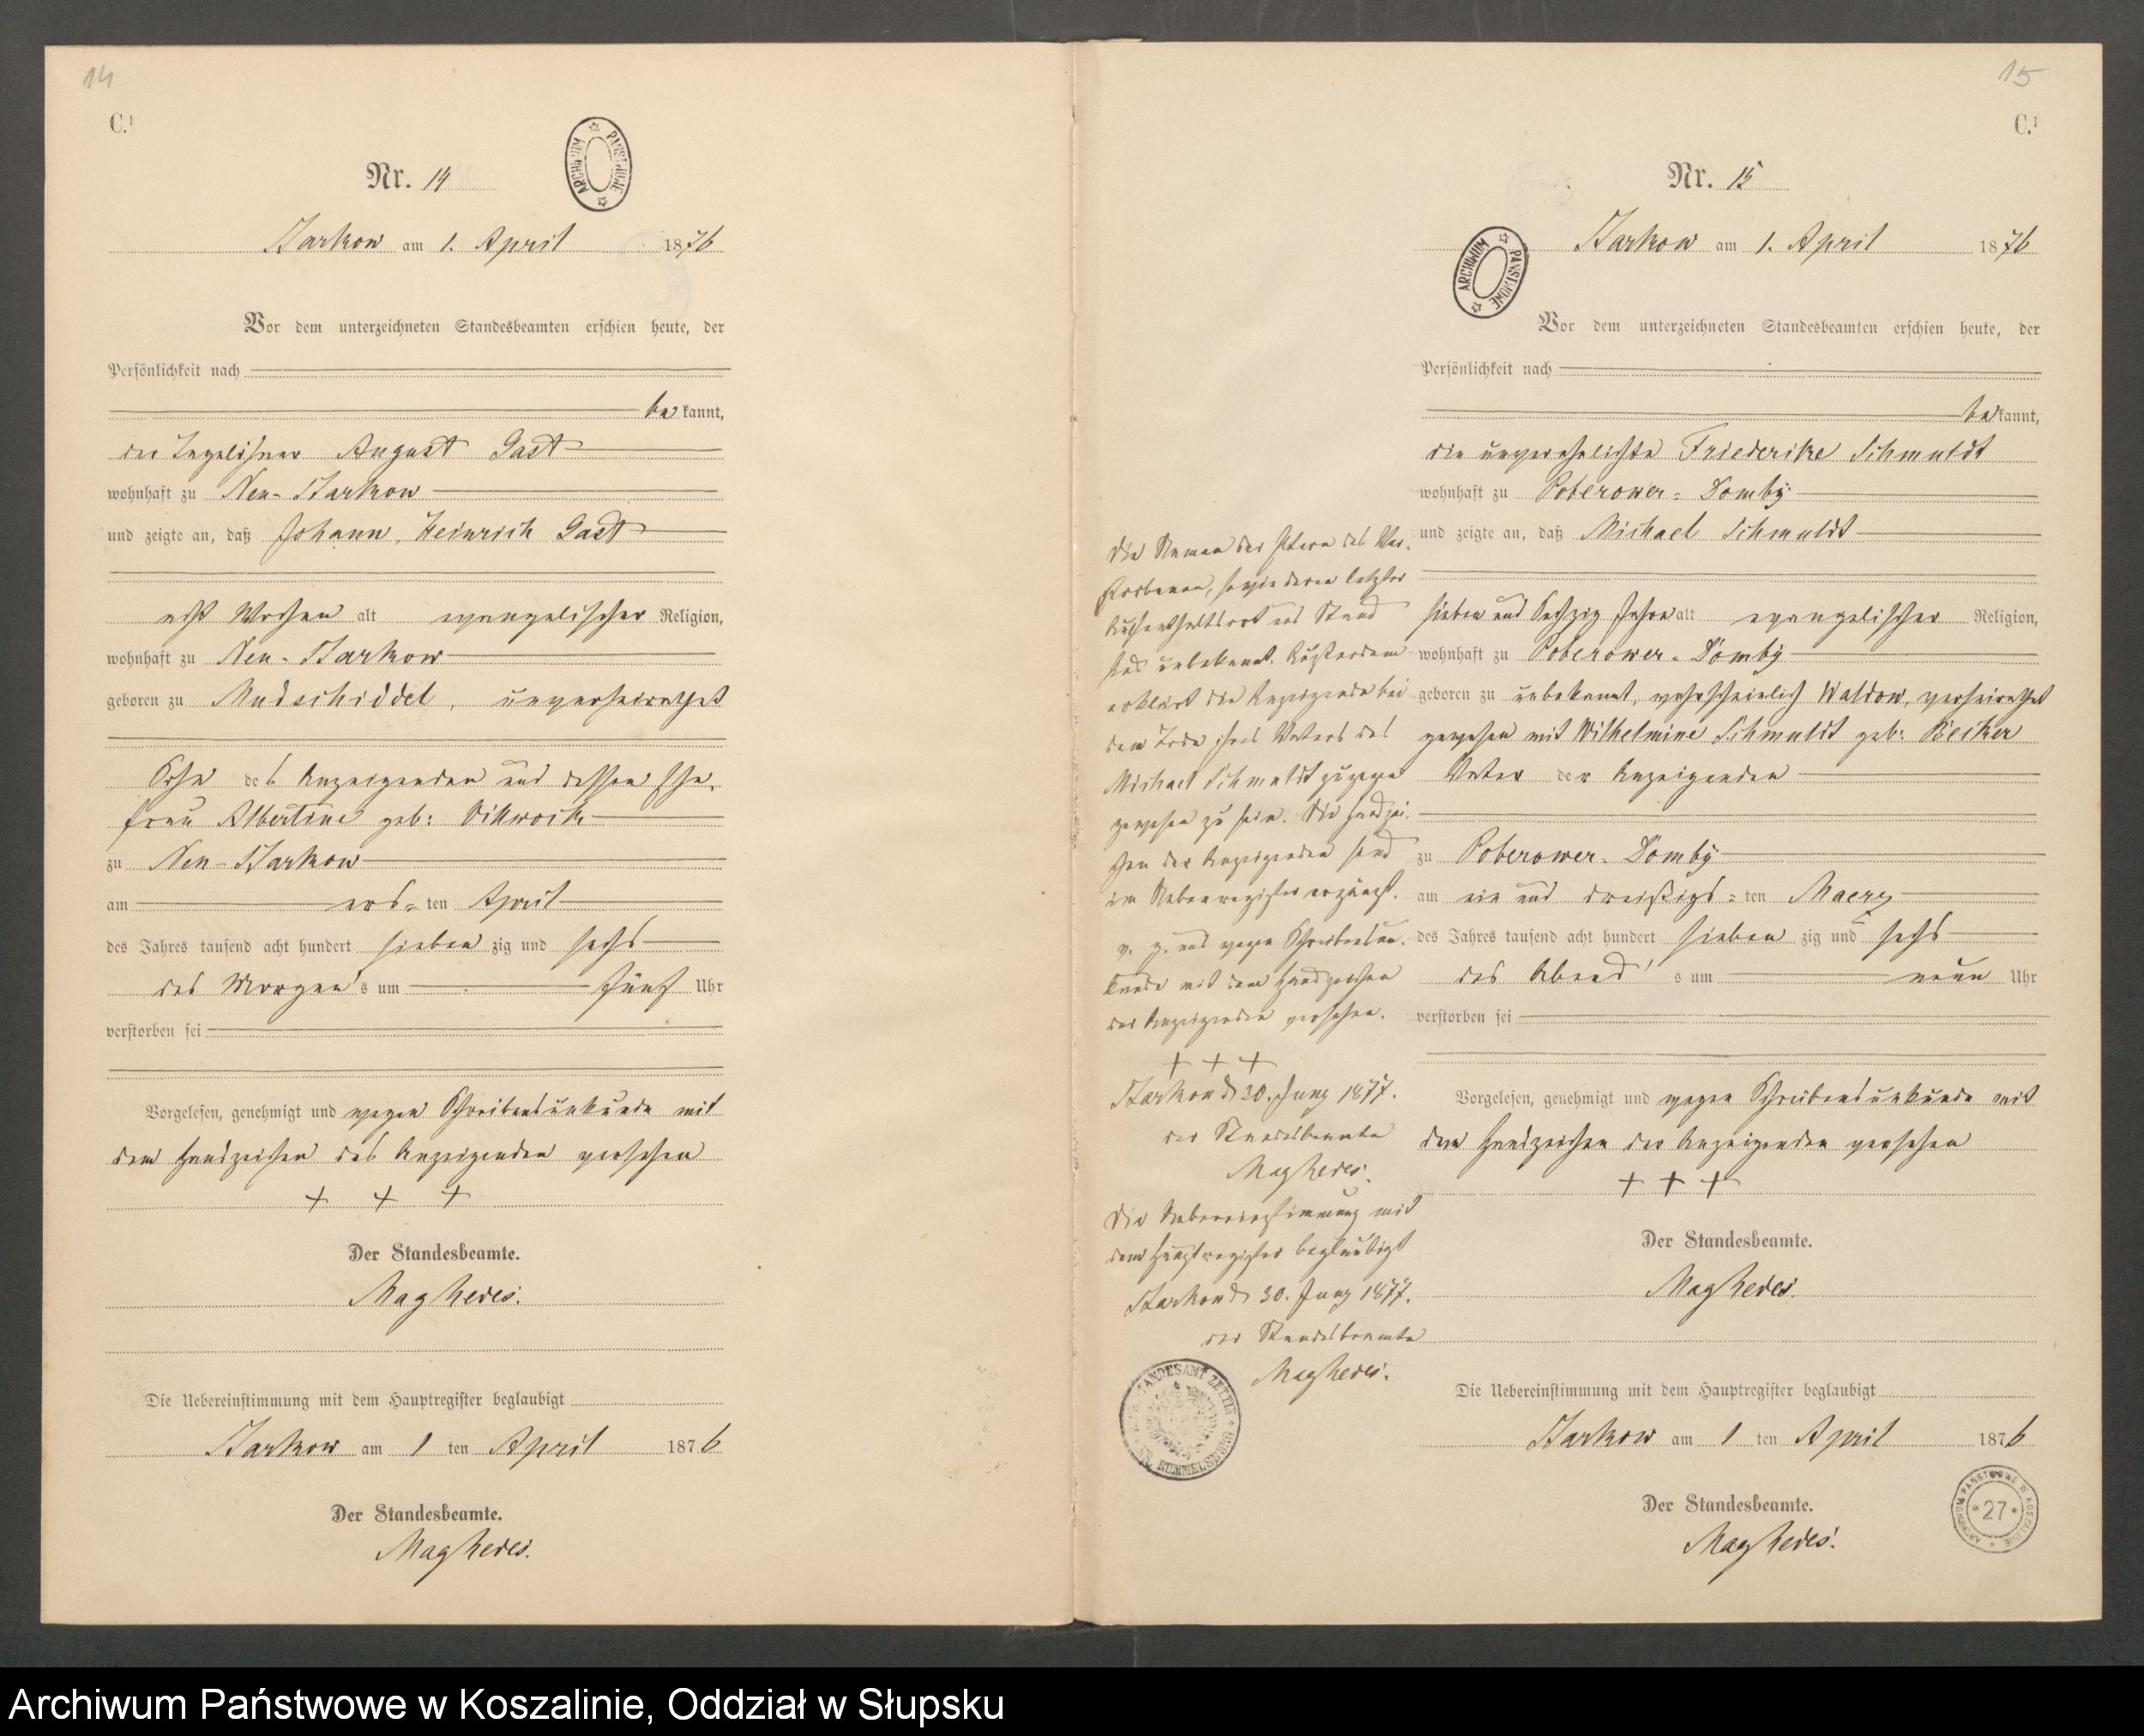 14
C.¹
Nr. 14
ARCHIWUM PAŃSTWOWE
Starkow am 1. April 1876
Vor dem unterzeichneten Standesbeamten erschien heute, der
Persönlichkeit nach
bekannt,
der Tagelöhner August Gast
wohnhaft zu Neu-Starkow
und zeigte an, daß Johann, Heinrich Gast
acht Wochen alt evangelischer Religion,
wohnhaft zu Neu-Starkow
geboren zu Mudschiddel, unverheirathet
Sohn des Anzeigenden und dessen Ehe-
frau Albertine geb:
zu Neu-Starkow
am ers-ten April
des Jahres tausend acht hundert sieben zig und sechs
des Morgens um fünf Uhr
verstorben sei
Vorgelesen, genehmigt und wegen Schreibensunkunde mit
dem Handzeichen des Anzeigenden versehen
+ + +
Der Standesbeamte.
Maghedes.
Die Uebereinstimmung mit dem Hauptregister beglaubigt
Starkow am 1 ten April 1876
Der Standesbeamte.
Maghedes.
15
C.¹
Nr. 15
ARCHIWUM PAŃSTWOWE
Starkow am 1. April 1876
Vor dem unterzeichneten Standesbeamten erschien heute, der
Persönlichkeit nach
bekannt,
die unverehelichte Friederike Schmuldt
wohnhaft zu Poberower-Domby
und zeigte an, daß Michael Schmuldt
sieben und sechzig Jahre alt evangelischer Religion,
wohnhaft zu Poberower-Domby
geboren zu unbekannt, wahrscheinlich Waldow, verheirathet
gewesen mit Wilhelmine Schmuldt geb: Becker
Vater der Anzeigenden
zu Poberower-Domby
am ein und dreißigs-ten Maerz
des Jahres tausend acht hundert sieben zig und sechs
des Abend's um neun Uhr
verstorben sei
Vorgelesen, genehmigt und wegen Schreibensunkunde mit
dem Handzeichen der Anzeigenden versehen
+ + +
Der Standesbeamte.
Maghedes.
Die Uebereinstimmung mit dem Hauptregister beglaubigt
Starkow am 1 ten April 1876
Der Standesbeamte.
Maghedes.
Die Namen der Eltern des Ver-
storbenen, sowie deren letzter
Aufenthaltsort und Stand
sind unbekannt. Außerdem
erklärt die Anzeigende bei
dem Tode ihres Vaters des
Michael Schmuldt zugegen
gewesen zu sein. Die Handzei-
chen der Anzeigenden sind
im Nebenregister ergänzt.
v. g. und wegen Schreibensun-
kunde mit dem Handzeichen
der Anzeigenden versehen.
+ + +
Starkow d 30. Juny 1877.
der Standesbeamte
Maghedes.
Die Uebereinstimmung mit
dem Hauptregister beglaubigt
Starkow d 30. Juny 1877.
der Standesbeamte
Maghedes.
STANDESAMT ZETTIN KR. RUMMELSBURG
ARCHIWUM PAŃSTWOWE W KOSZALINIE
*27*
Archiwum Państwowe w Koszalinie, Oddział w Słupsku